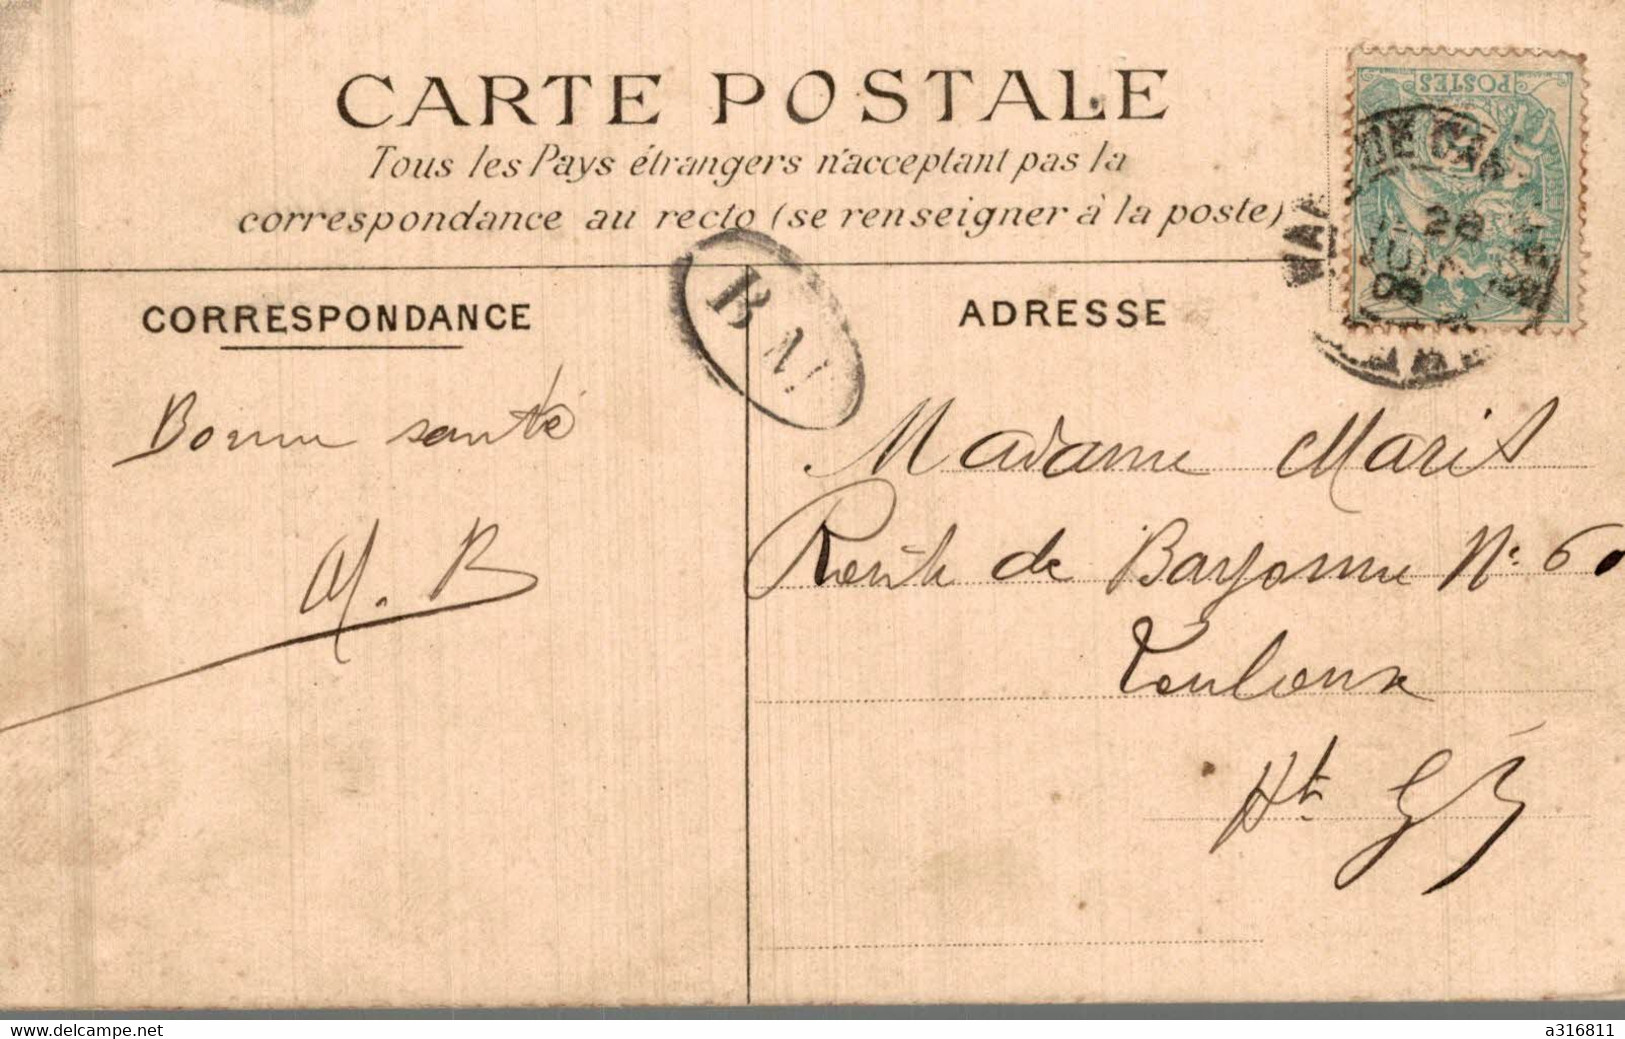 CARTE POSTALE
Tous les Pays étrangers n'acceptant pas la
correspondance au recto (se renseigner à la poste)
POSTES
DE
28
CORRESPONDANCE
ADRESSE
Bonne santé
M. B
Madame Maris
Route de Bayonne N° 60
Toulouse
Hte
www.delcampe.net
a316811